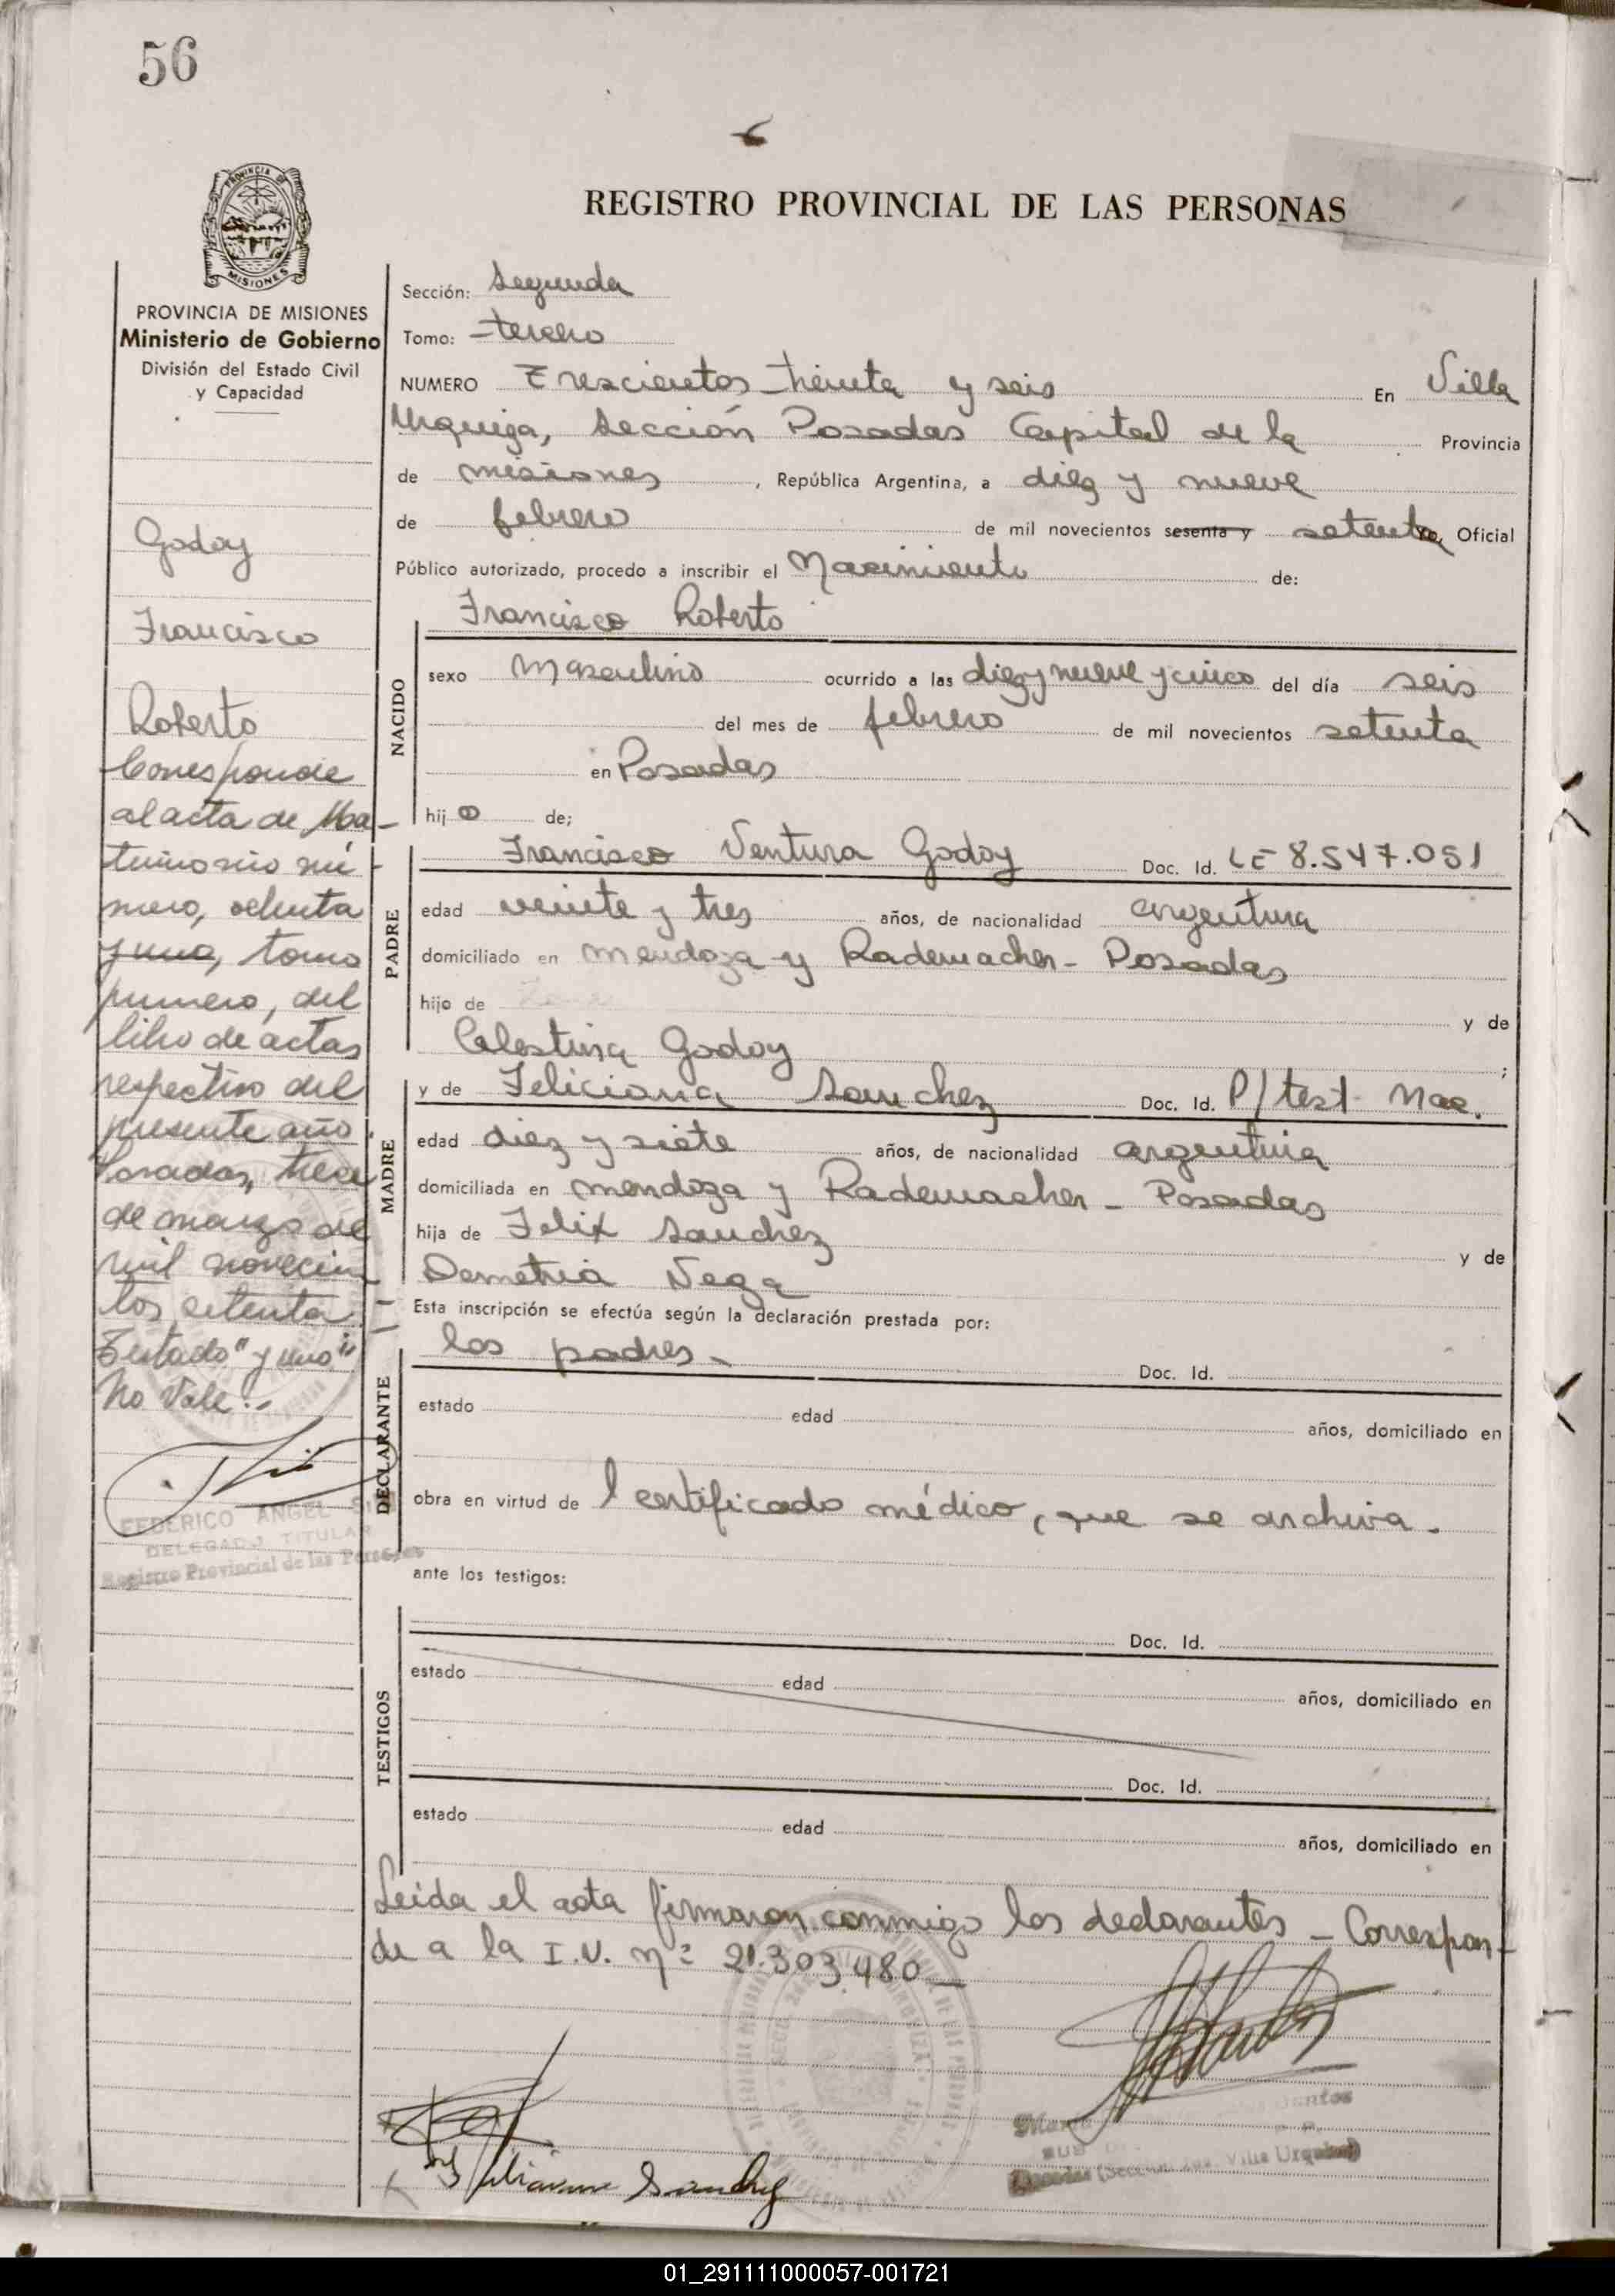 56
REGISTRO PROVINCIAL DE LAS PERSONAS
PROVINCIA DE
MISIONES
PROVINCIA DE MISIONES
Ministerio de Gobierno
División del Estado Civil
y Capacidad
Godoy
Francisco
Roberto
Corresponde
al acta de Ma-
trimonio nú-
mero, ochenta
y uno, tomo
primero, del
libro de actas
respectivo del
presente año.
Posadas, trece
de marzo de
mil novecien
tos setenta. -
Testado "y uno"
No Vale.-
FEDERICO ANGEL
DELEGADO TITULAR
Registro Provincial de las Personas
Sección: Segunda
Tomo: tercero
NUMERO Trescientos treinta y seis En Villa
Urquiza, Sección Posadas Capital de la Provincia
de misiones, República Argentina, a diez y nueve
de febrero de mil novecientos sesenta y setenta, Oficial
Público autorizado, procedo a inscribir el Nacimiento de:
Francisco Roberto
NACIDO
sexo masculino ocurrido a las diez y nueve y cinco del día seis
del mes de febrero de mil novecientos setenta
en Posadas
hijo de;
PADRE
Francisco Ventura Godoy Doc. Id. LE 8.547.051
edad veinte y tres años, de nacionalidad argentina
domiciliado en mendoza y Rademacher - Posadas
hijo de y de
Celestina Godoy ;
MADRE
y de Feliciana Sanchez Doc. Id. P/ test. Nac.
edad diez y siete años, de nacionalidad argentina
domiciliada en mendoza y Rademacher - Posadas
hija de Felix Sanchez y de
Demetria Vega
Esta inscripción se efectúa según la declaración prestada por:
DECLARANTE
los padres - Doc. Id.
estado edad años, domiciliado en
obra en virtud de l certificado médico, que se archiva.
ante los testigos:
TESTIGOS
Doc. Id.
estado edad años, domiciliado en
Doc. Id.
estado edad años, domiciliado en
Leida el acta firmaron conmigo los declarantes - Correspon-
de a la I.V. nº 21.303.480 -
Feliciana Sanchez
Posadas (Sección 2da. Villa Urquiza)
01_291111000057-001721